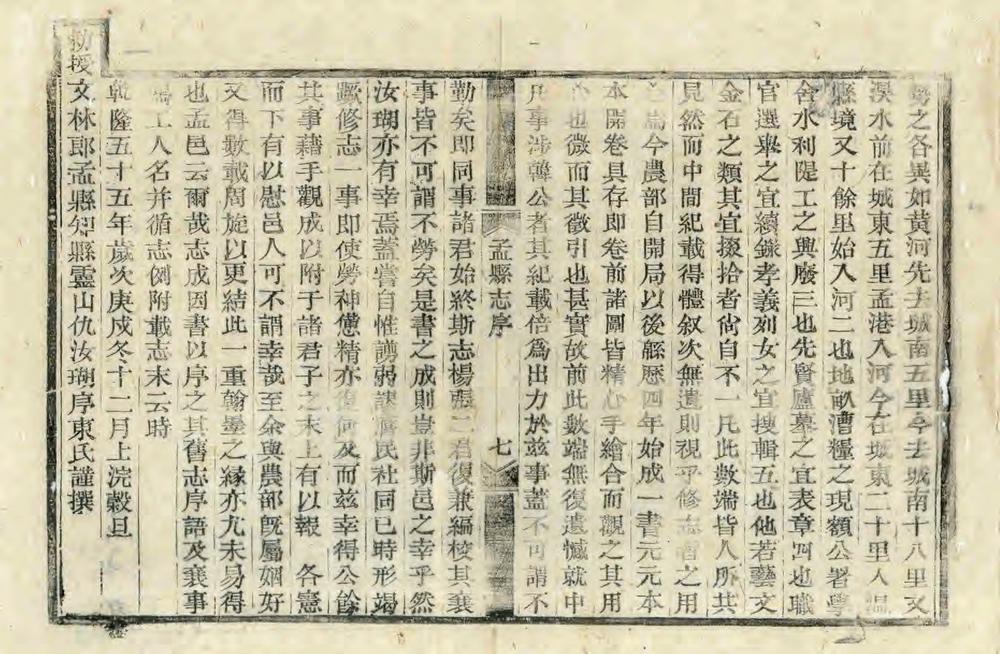 勢之各異如黃河先去城南五里今去城南十八里又
溴水前在城東五里孟港入河今在城東二十里入溫
縣境又十餘里始入河二也地畝漕糧之現額公署學
舍水利隄工之興廢三也先賢廬墓之宜表章四也職
官選舉之宜續錄孝義列女之宜搜輯五也他若藝文
金石之類其宜掇拾者尙自不一凡此數端皆人所共
見然而中間紀載得體叙次無遺則視乎修志者之用
心焉今農部自開局以後緜歷四年始成一書元元本
本開卷具存即卷前諸圖皆精心手繪合而觀之其用
也微而其徵引也甚實故前此數端無復遺憾就中
凡事涉韓公者其紀載倍爲出力於兹事蓋不可謂不
孟縣志序
七
勤矣即同事諸君始終斯志楊張二君復兼編校其襄
事皆不可謂不勞矣是書之成則豈非斯邑之幸乎然
汝瑚亦有幸焉蓋嘗自惟譾弱謀濟民社同已時形竭
蹶修志一事即使勞神憊精亦復何及而兹幸得公餘
其事藉手觀成以附于諸君子之末上有以報 各憲
而下有以慰邑人可不謂幸哉至余與農部旣屬姻好
又得數載周旋以更結此一重翰墨之緣亦尤未易得
也孟邑云爾哉志成因書以序之其舊志序語及襄事
工人名并循志例附載志末云時
乾隆五十五年歲次庚戌冬十二月上浣穀旦
勅授文林郎孟縣知縣靈山仇汝瑚序東氏謹撰